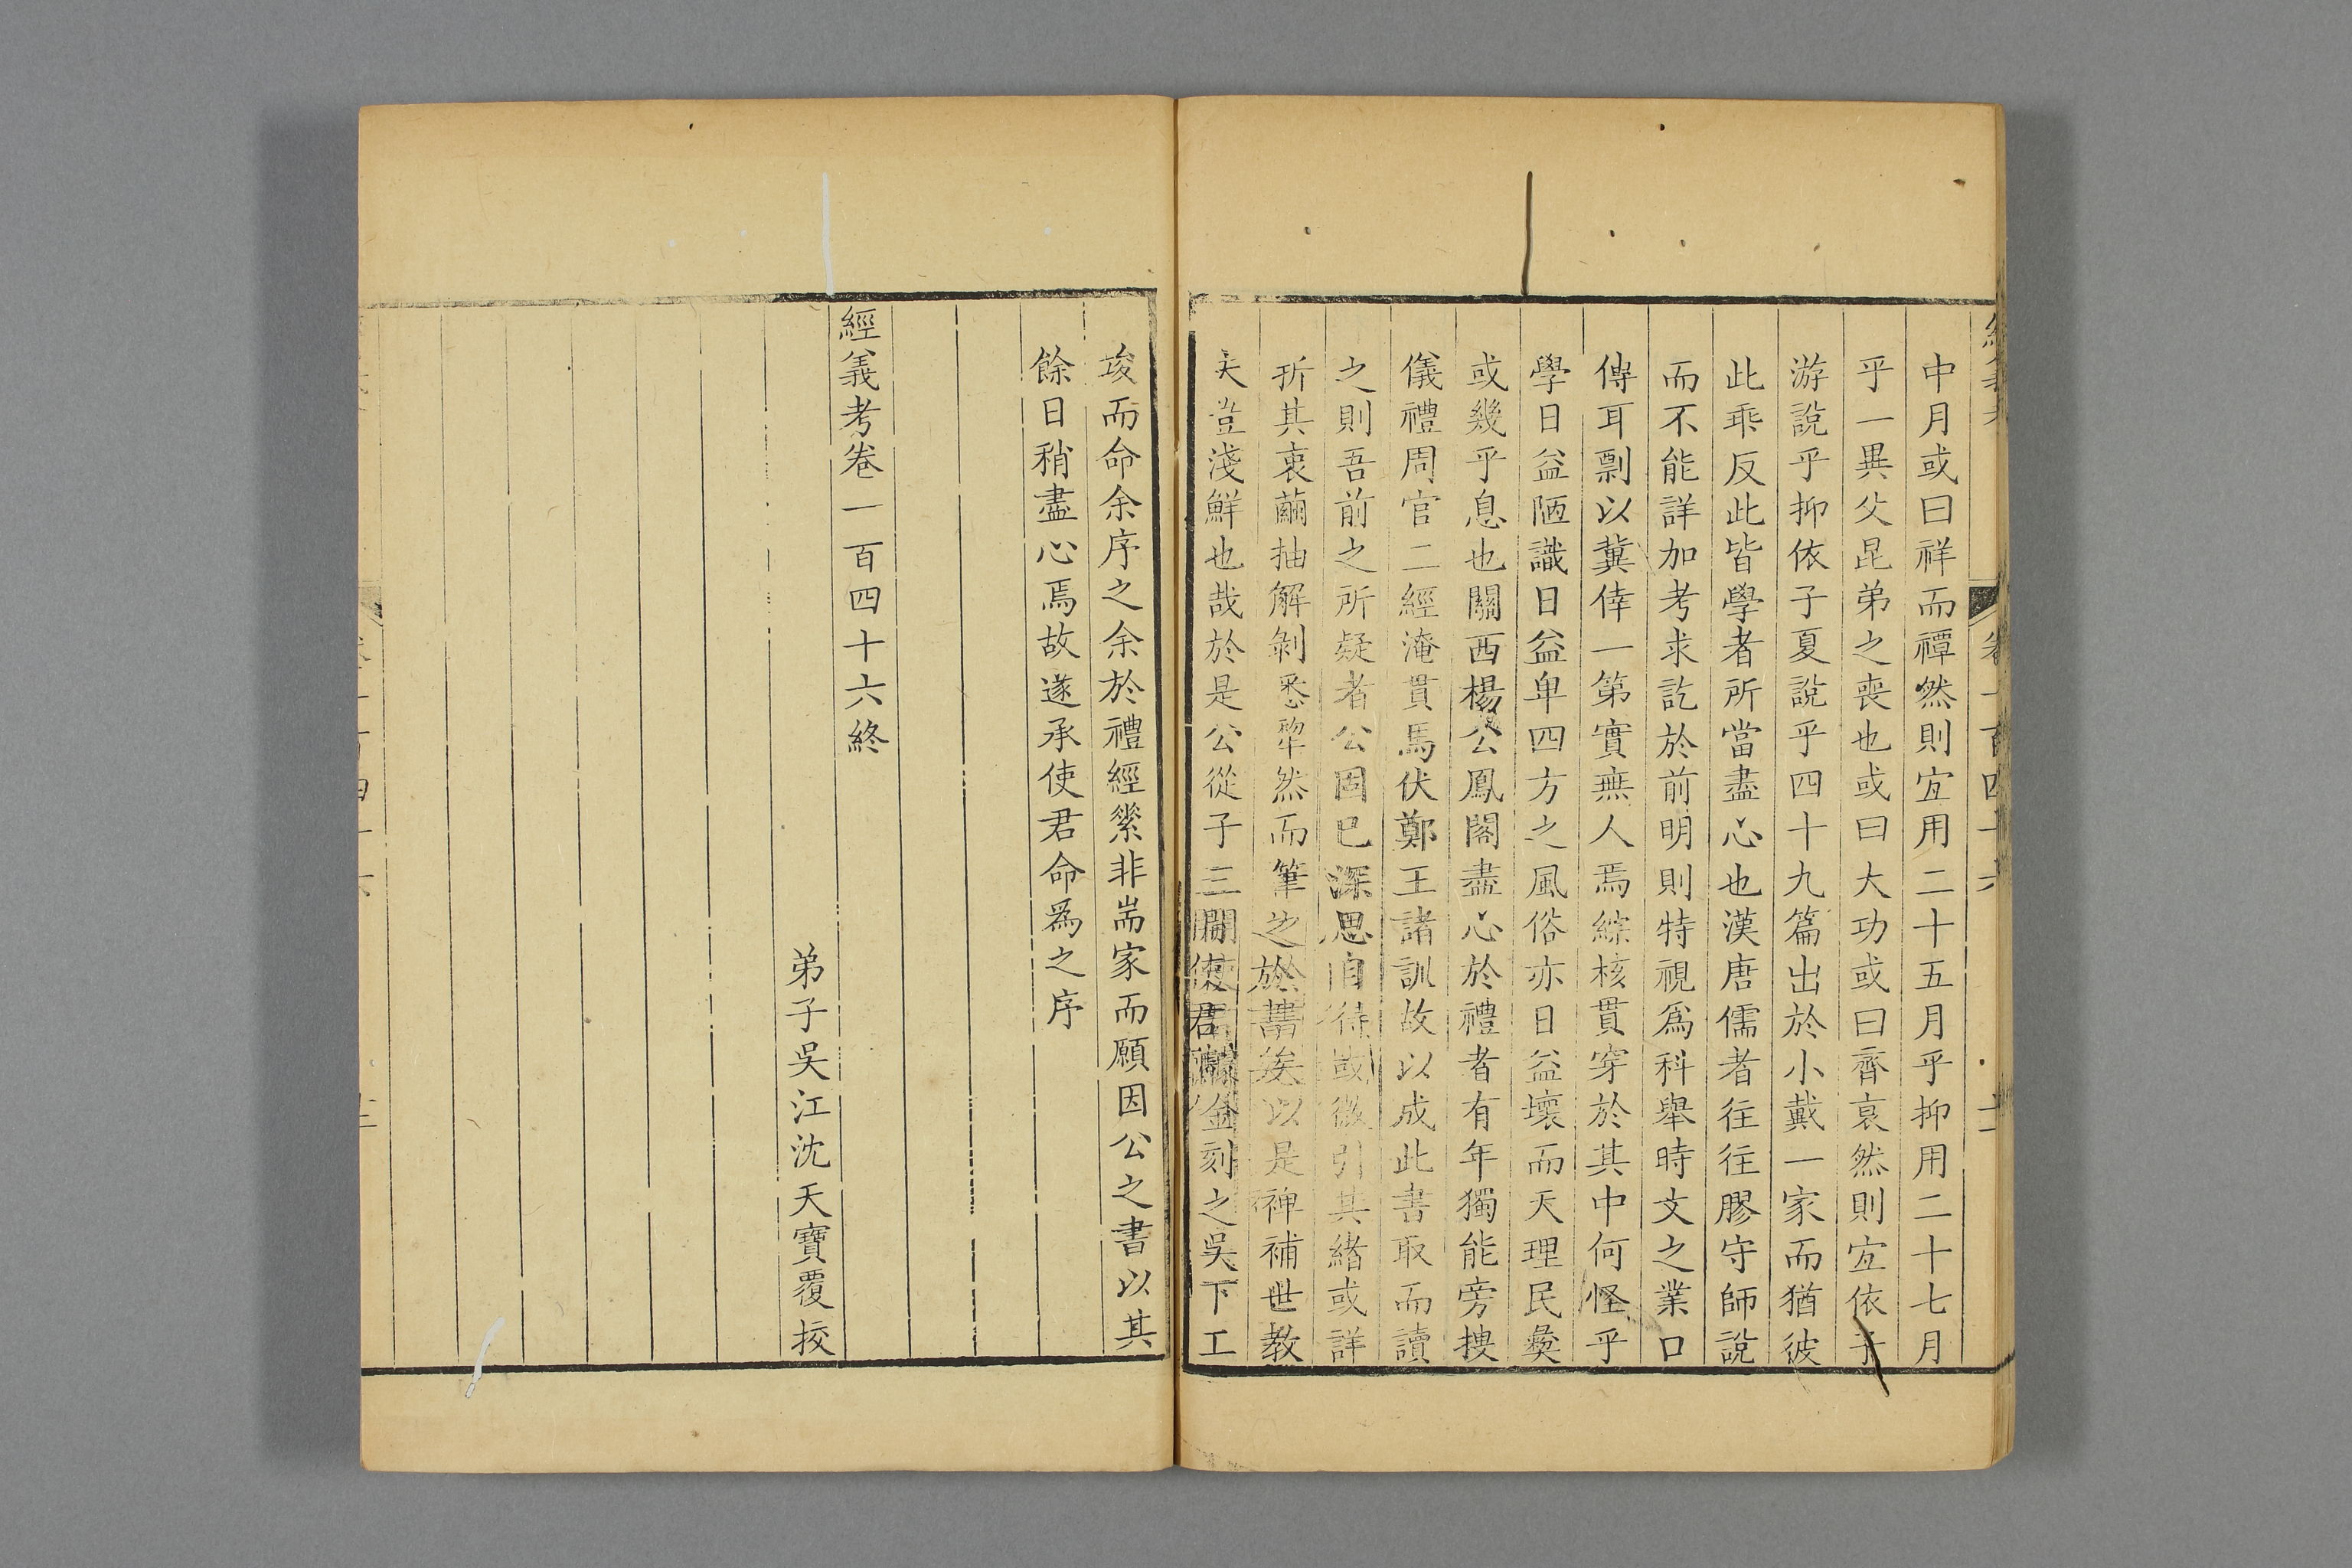 中月或曰祥而禫然則宜用二十五月乎抑用二十七月
乎一異父昆弟之喪也或曰大功或曰齊衰然則宜依子
游說乎抑依子夏說乎四十九篇出於小戴一家而猶彼
此乖反此皆學者所當盡心也漢唐儒者往往膠守師說
而不能詳加考求訖於前明則特視爲科舉時文之業口
傳耳剽以冀倖一第實無人焉綜核貫穿於其中何怪乎
學日益陋識日益卑四方之風俗亦日益壞而天理民彝
或幾乎息也關西楊公鳳閣盡心於禮者有年獨能旁摉
儀禮周官二經淹貫馬伏鄭王諸訓故以成此書取而讀
之則吾前之所疑者公固已深思自得或徵引其緒或詳
折其衷繭抽解剝悉犂然而筆之於書矣以是裨補世教
夫豈淺鮮也哉於是公從子三開使君鏤金刻之吳下工
竣而命余序之余於禮經縈非耑家而願因公之書以其
餘日稍盡心焉故遂承使君命爲之序
經義考卷一百四十六終
弟子吳江沈天寶覆挍